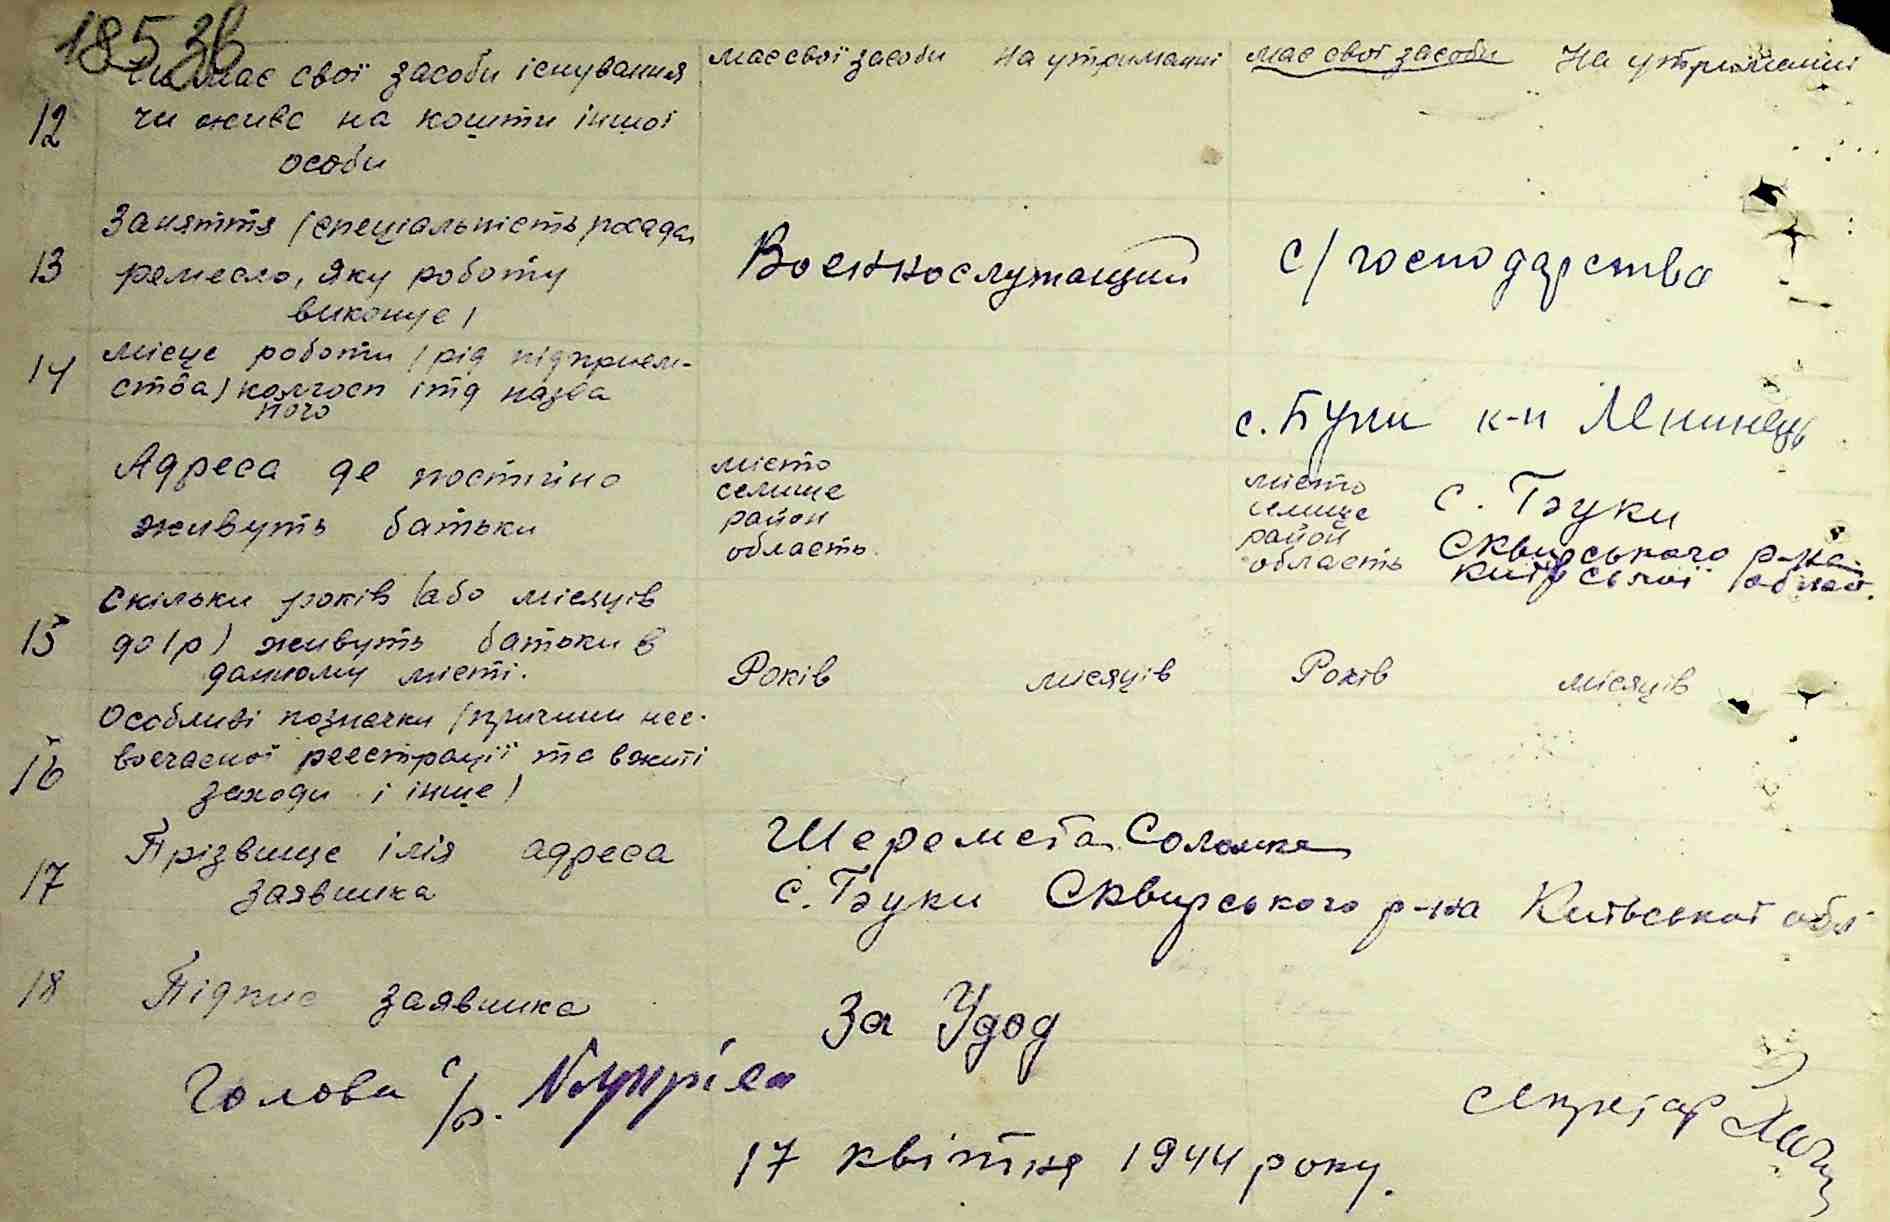 18536
Чи має свої засоби існування має свої засоби На утриманні має свої засоби На утриманні
12 чи живе на кошти іншої
особи
Заняття /спеціальність, посада,
13 ремесло, яку роботу Военнослужащий с/господарства
виконує/
14 Місце роботи /рід підприєм-
ства/ колгосп ітд назва
його с. Буки к-п Ленинець
Адреса де постійно місто місто с. Буки
живуть батьки селище селище
район район Сквирського р-на
область область Київської област.
Скільки років /або місяців
15 до 1 р/ живуть батьки в
данному місті. Років місяців Років місяців
Особливі позначки /причини нес-
16 воєчасної реєстрації та вжиті
заходи і інше/
17 Прізвище ім'я адреса Шеремета Соломия
заявника с. Буки Сквирського р-на Київської обл
18 Підпис заявника За Удод
Голова с/р. секретар
17 квітня 1944 року.